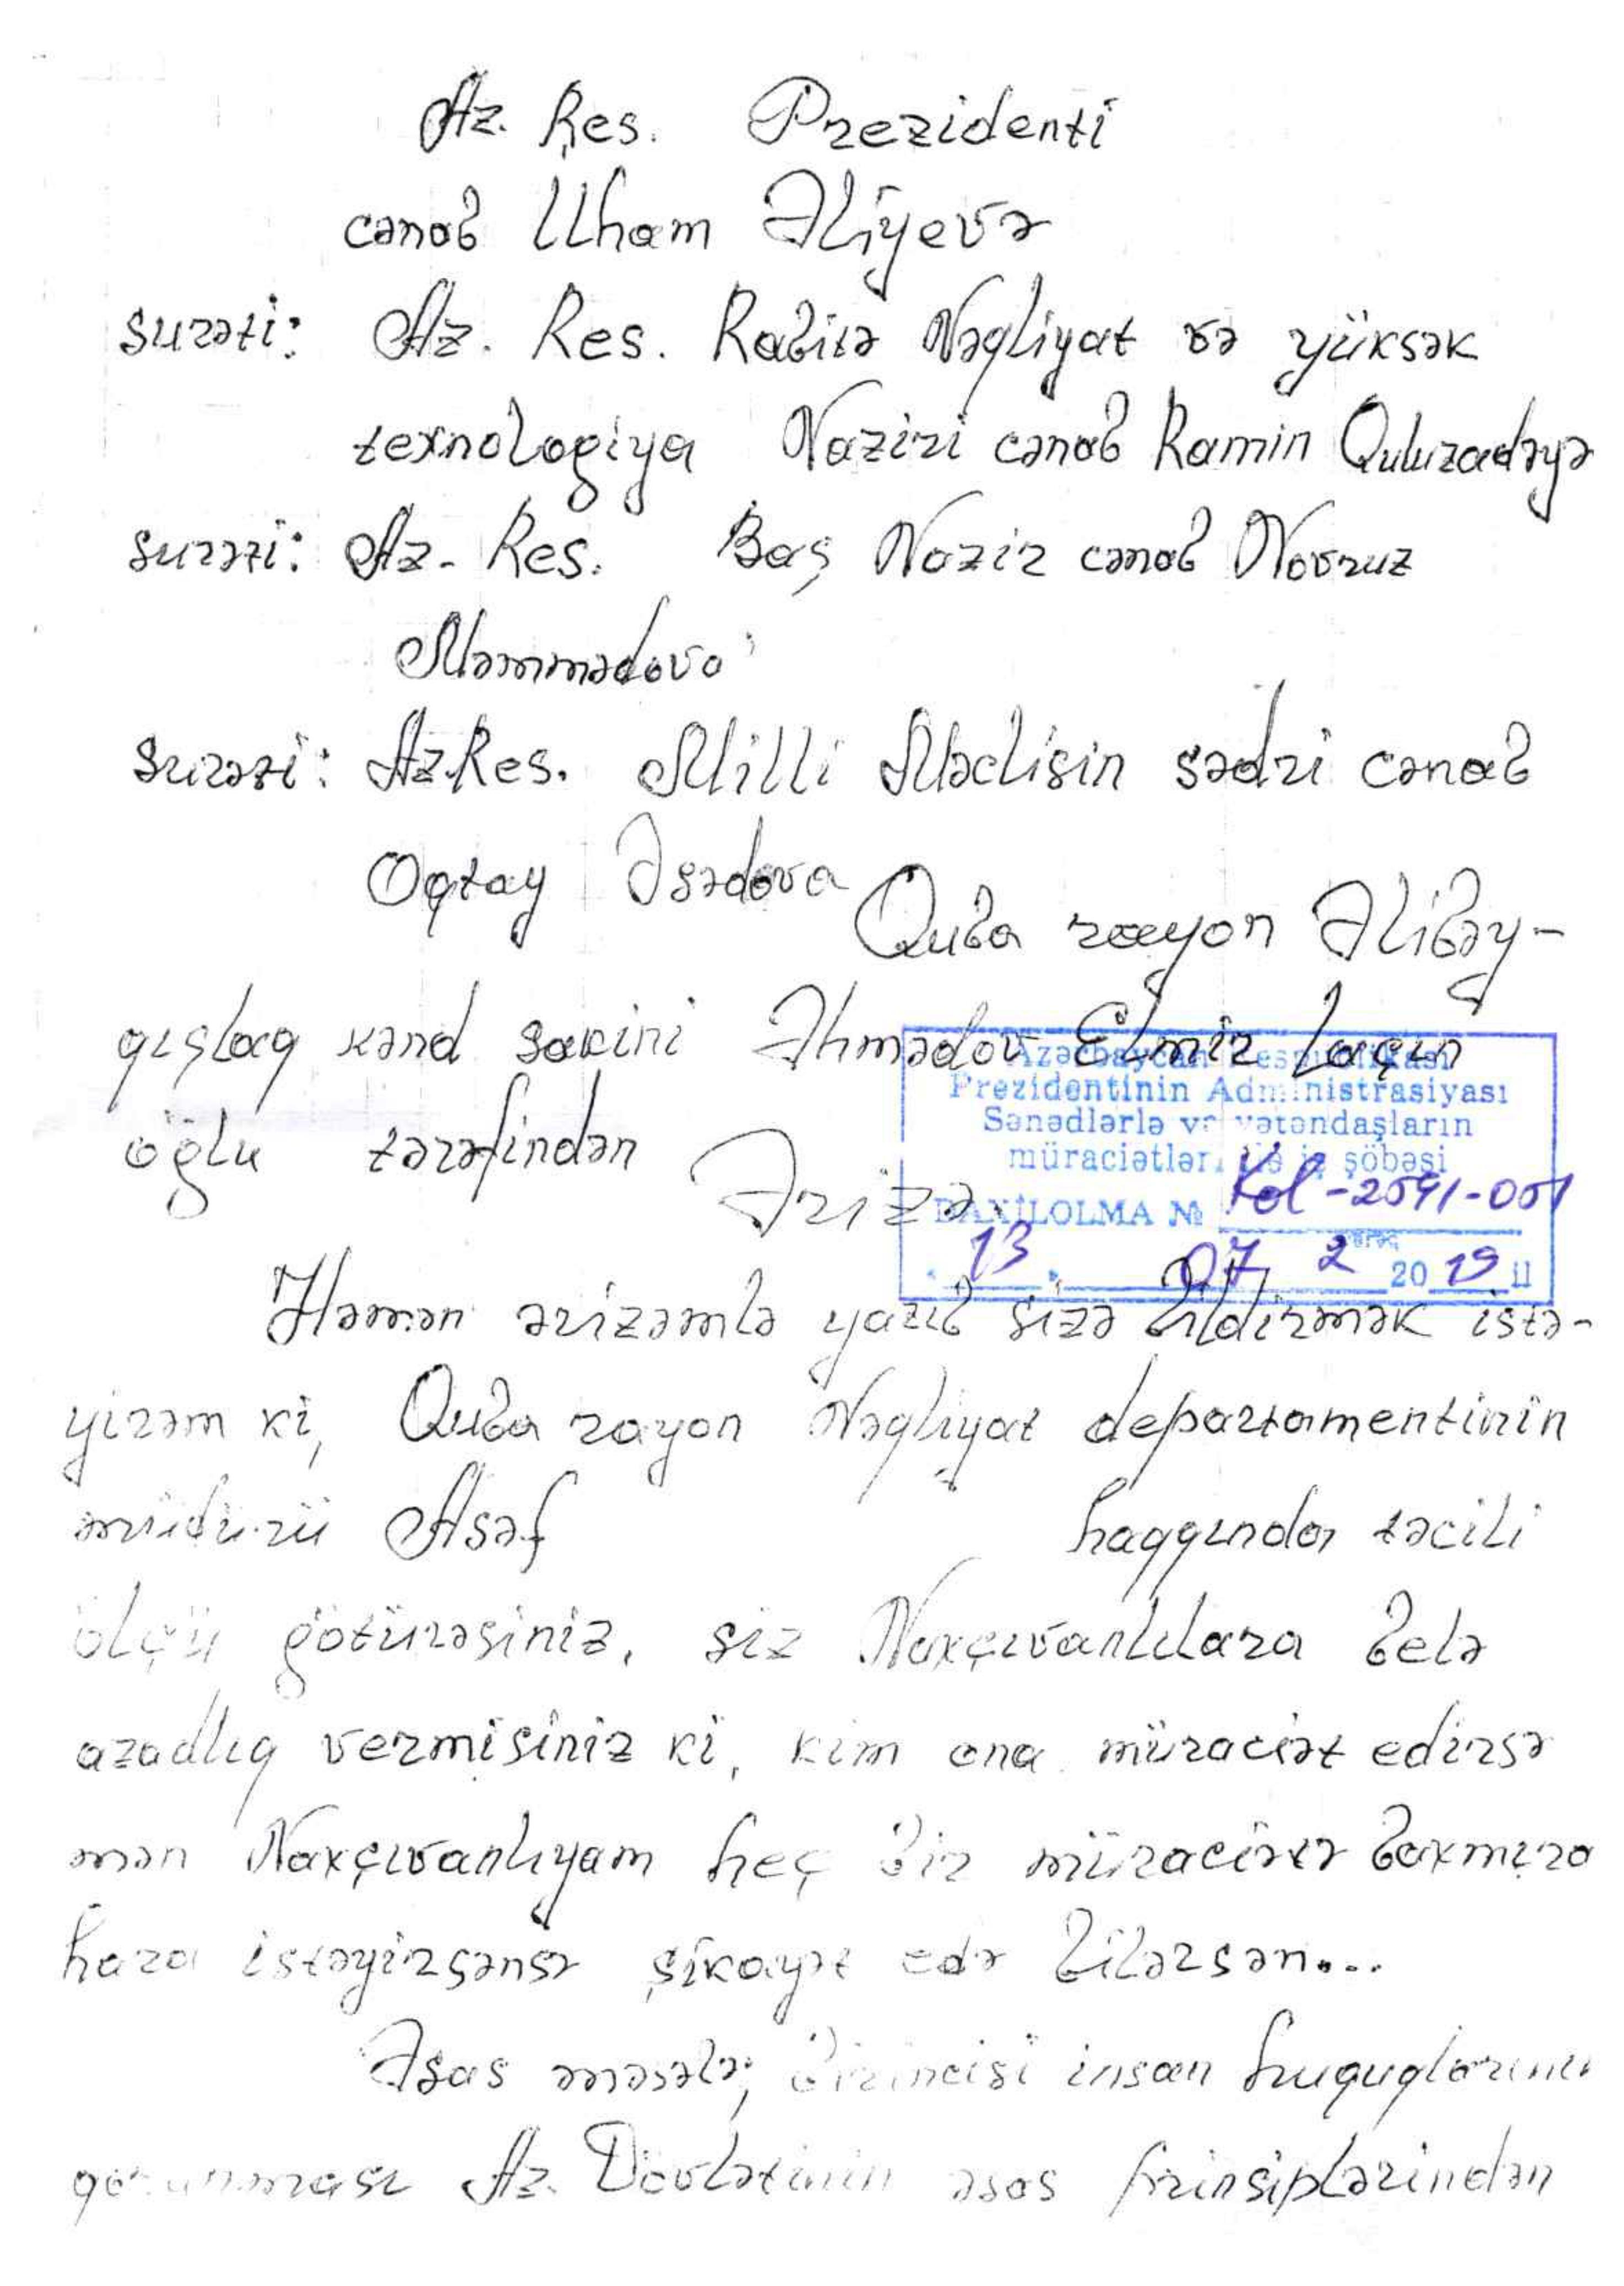 Az. Res. Prezidenti
cənab İlham Əliyevə
surəti: Az. Res. Rabitə Nəqliyat və yüksək
texnologiya Naziri cənab Ramin Quluzadəyə
surəti: Az. Res. Baş Nazir cənab Novruz
Məmmədova
surəti: Az.Res. Milli Məclisin sədri cənab
Oqtay Əsədova
Quba rayon Əlibəy-
qışlaq kənd sakini Əhmədov Elmir Laçın
oğlu tərəfindən
Azərbaycan Respublikası
Prezidentinin Administrasiyası
Sənədlərlə və vətəndaşların
müraciətləri ilə iş şöbəsi
DAXİLOLMA № Kol-2591-001
vərəq
Ərizə
" 13 " 07 2 2019 il
Həmən ərizəmlə yazıb sizə bildirmək istə-
yirəm ki, Quba rayon Nəqliyat departamentinin
müdürü Asəf haqqında təcili
ölçü götürəsiniz, siz Naxçıvanlılara belə
azadlıq vermisiniz ki, kim ona müraciət edirsə
mən Naxçıvanlıyam heç bir müraciətə baxmıra
hara istəyirsənsə şikayət edə bilərsən...
Əsas məsələ; birincisi insan huquqlarının
qorunması Az. Dövlətinin əsas prinsiplərindən